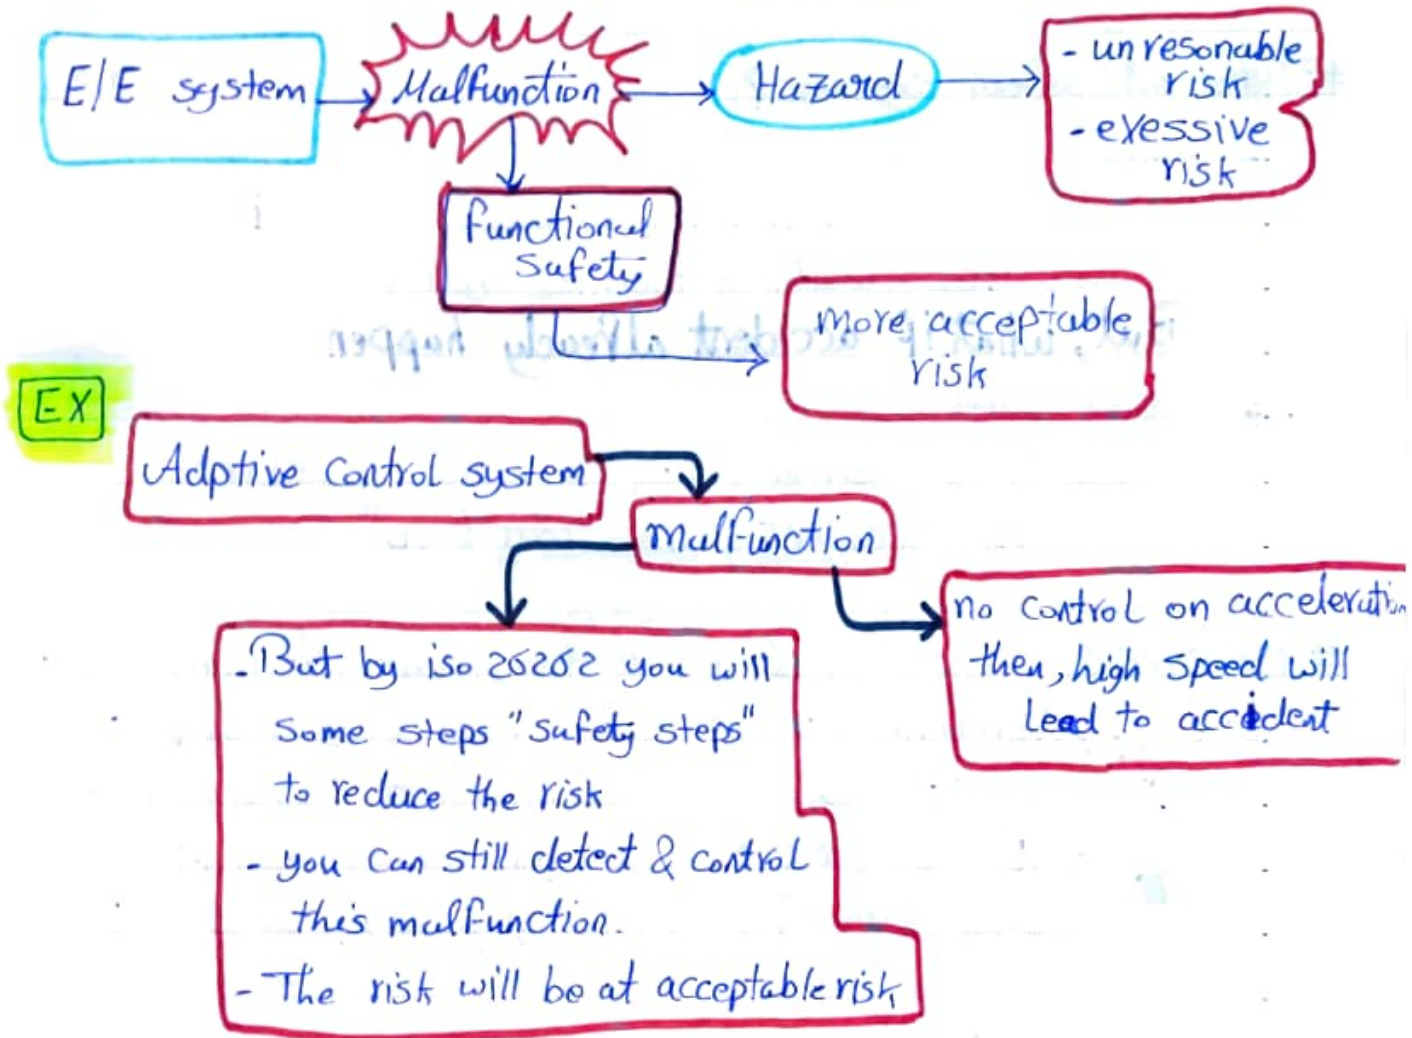 E/E system
Malfunction
Hazard
- unresonable
risk
- exessive
risk
functional
Safety
more acceptable
risk
EX
Adptive Control system
malfunction
no control on acceleration
then, high speed will
Lead to accident
- But by iso 26262 you will
some steps "safety steps"
to reduce the risk
- you can still detect & control
this malfunction.
- The risk will be at acceptable risk